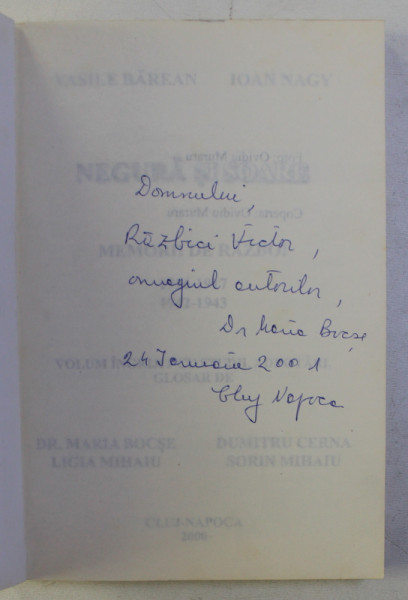 VASILE BĂREAN IOAN NAGY
Ovidiu Muraru
NEGURĂ
Domnului,
Coperta: Ovidiu Muraru
Răzbici Victor,
MEMORII DE RĂZBOI
omagiul autorilor,
1942-1943
Dr Maria Bocșe
VOLUM
24 Ianuarie 2001
GLOSAR DE
Cluj Napoca
DR. MARIA BOCȘE DUMITRU CERNA
LIGIA MIHAIU SORIN MIHAIU
CLUJ-NAPOCA
2000